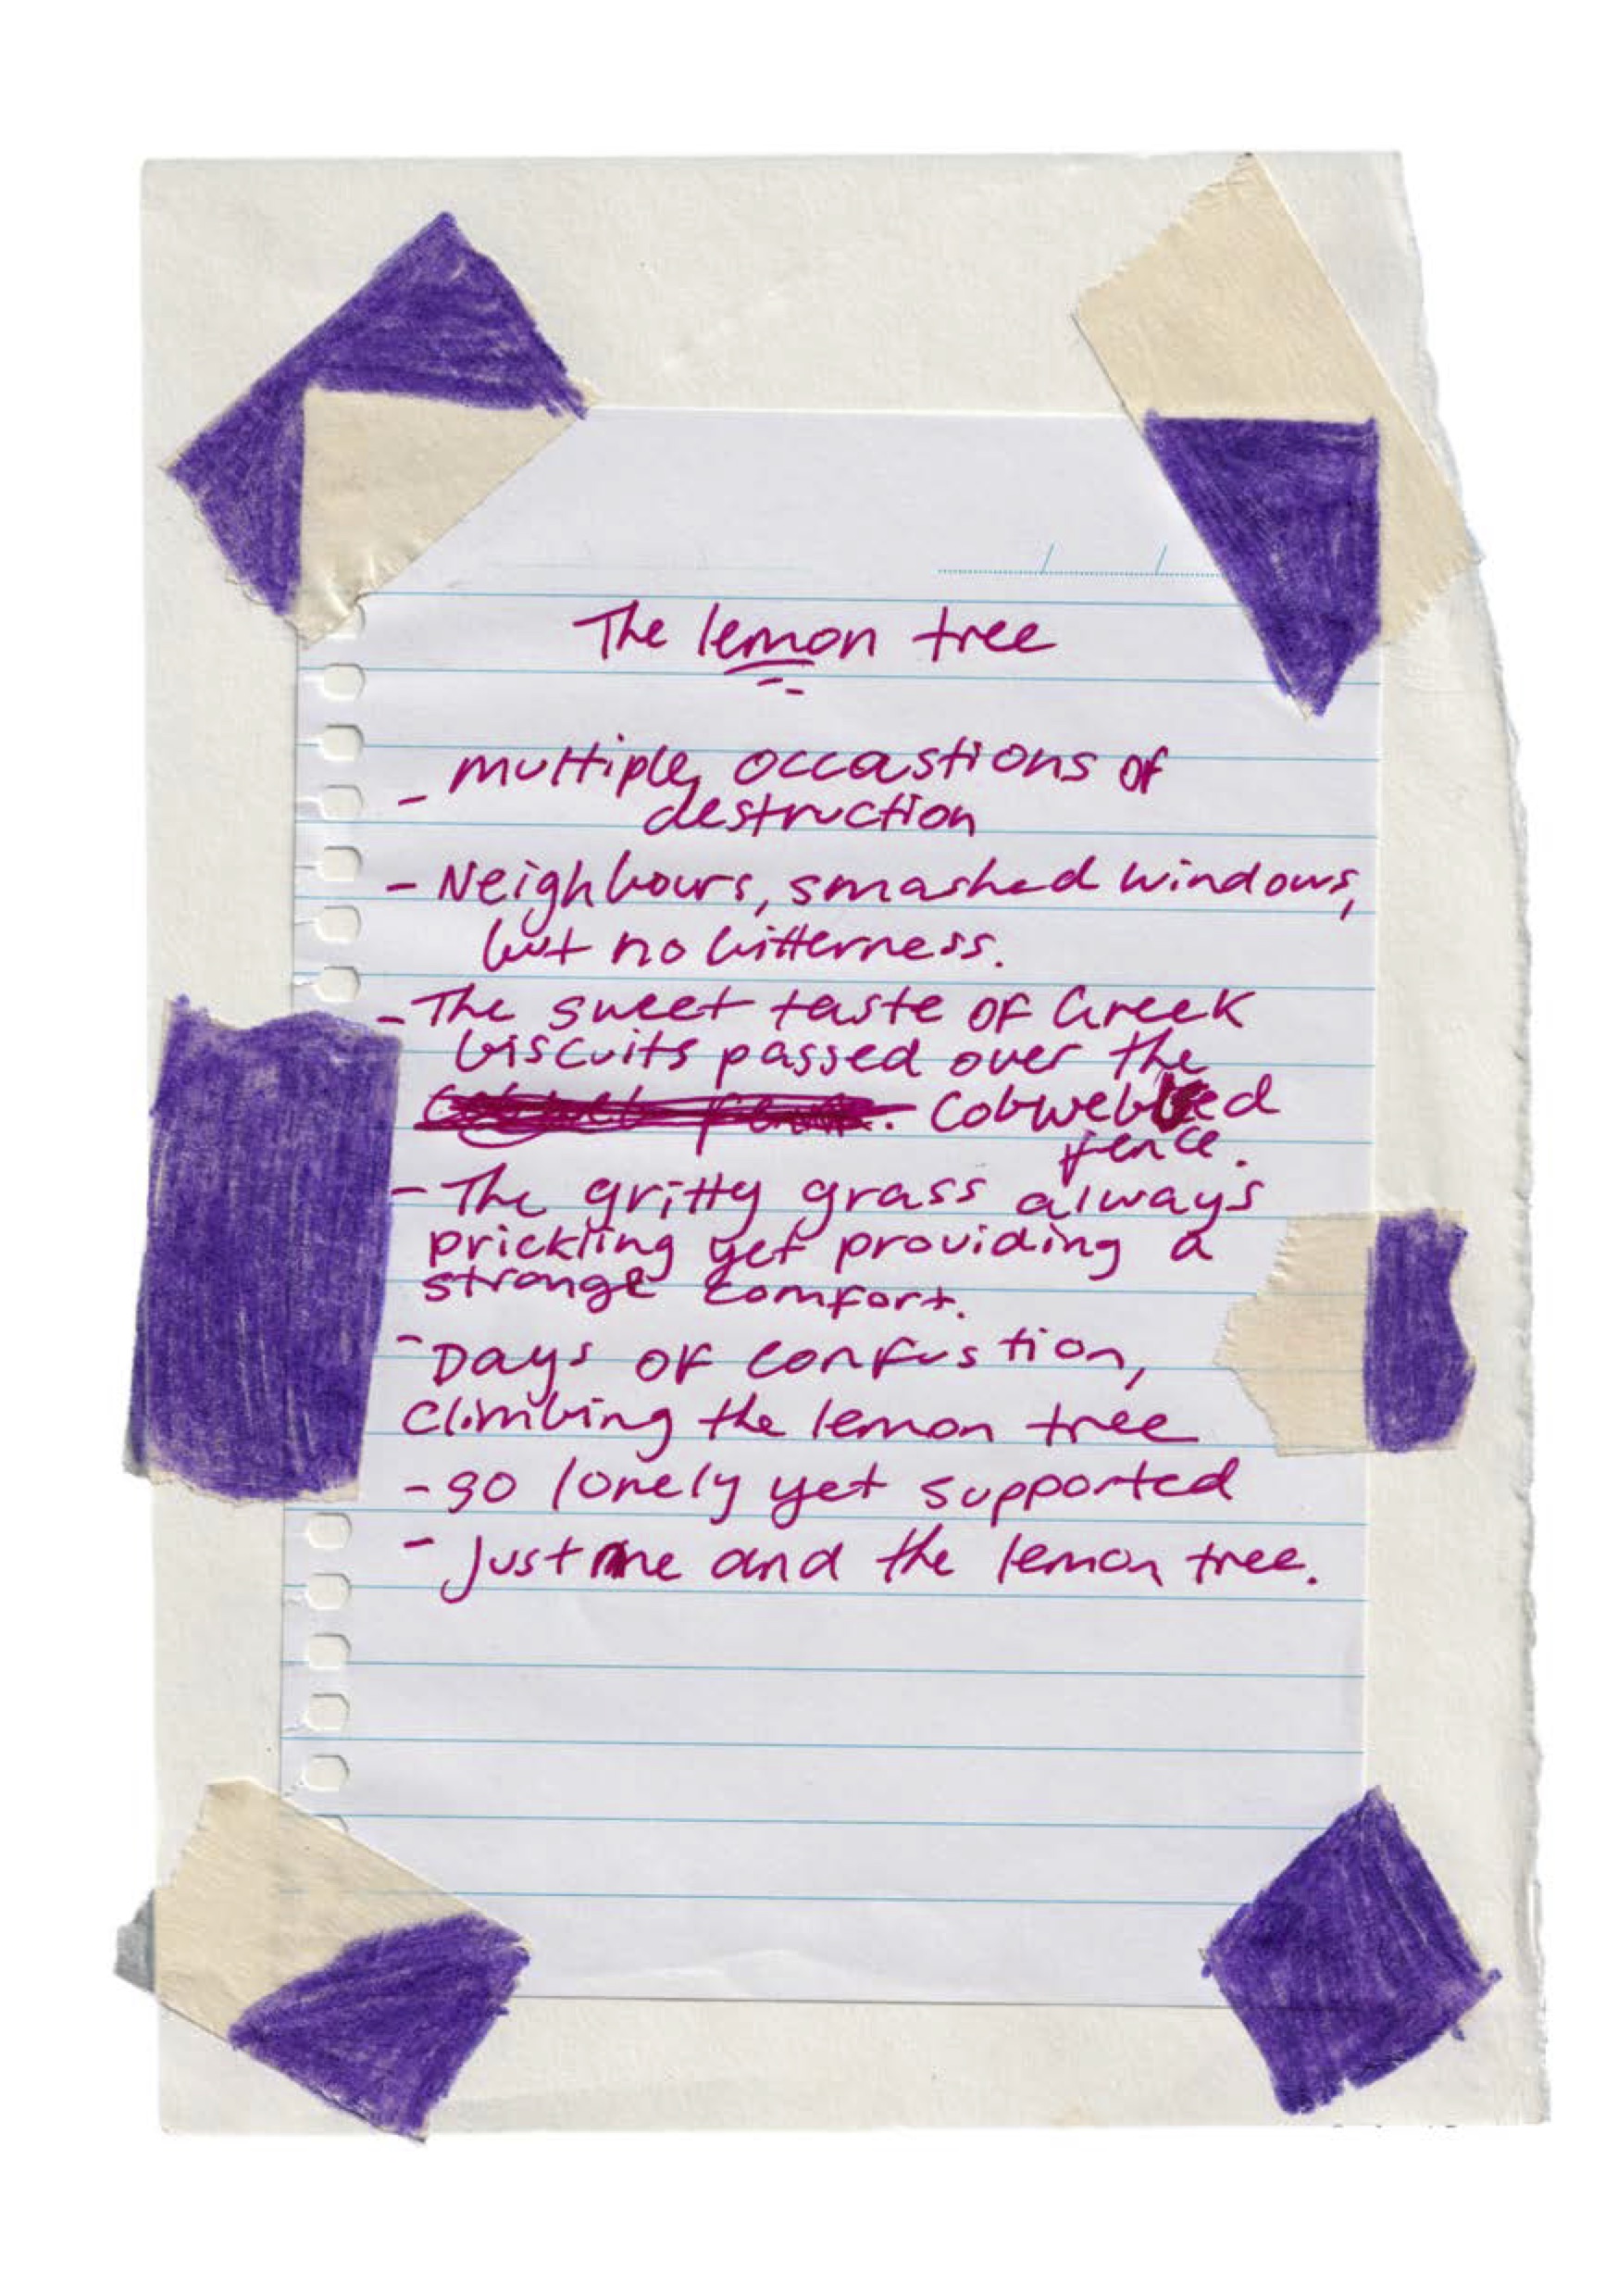 The lemon tree
- multiple occastions of
destruction
- Neighbours, smashed windows,
but no bitterness.
- The sweet taste of Greek
biscuits passed over the
Cobwebbed
fence.
- The gritty grass always
prickling yet providing a
strange comfort.
- Days of confustion,
climbing the lemon tree
- so lonely yet supported
- just me and the lemon tree.